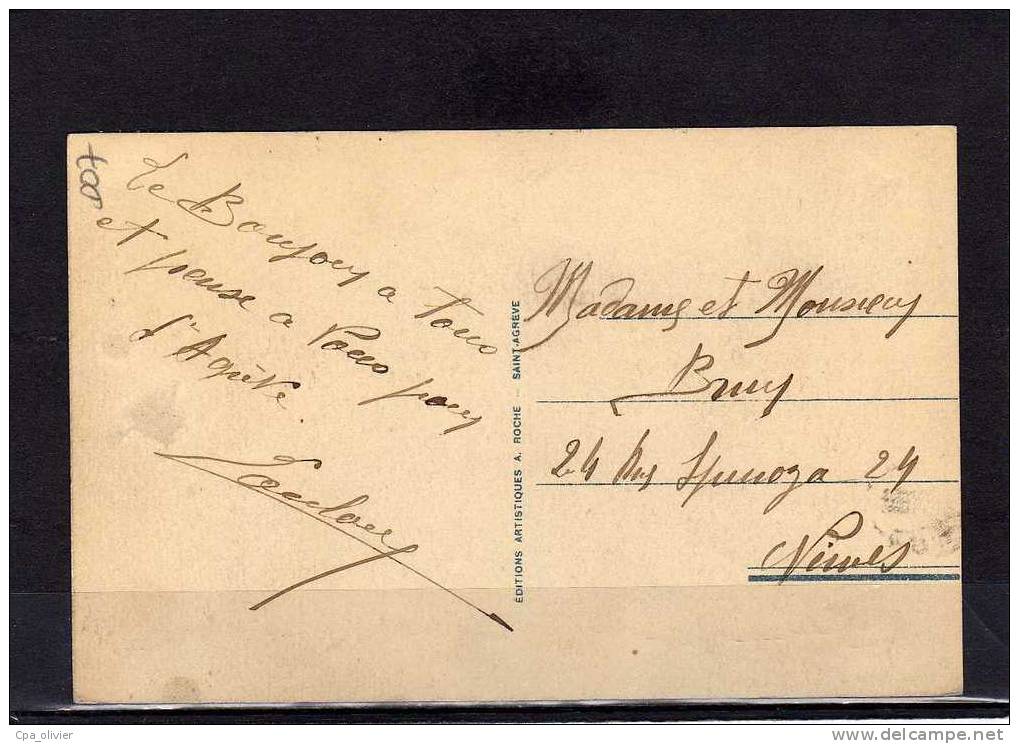 Le Bonjour a Tous
et pense a Vous pour
d'Agrève.
ÉDITIONS ARTISTIQUES A. ROCHE - SAINT-AGRÈVE
Madame et Monsieur
Bruy
24 Rue Spinoza 24
Nimes
Cpa_olivier
delcampe.net